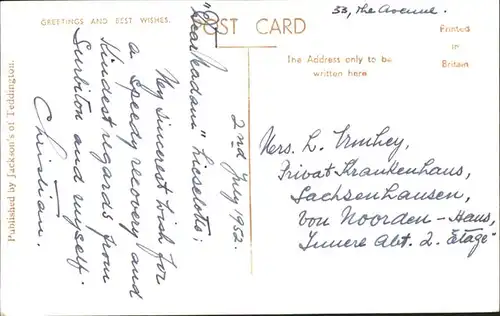 GREETINGS AND BEST WISHES.
POST CARD
53, the Avenue.
Printed
in
Britain
The Address only to be
written here
Published by Jackson's of Teddington.
2nd July 1952.
"Dear Madam" Lieselotte;
My sincerest wish for
a speedy recovery and
kindest regards from
Surbiton and myself.
Christian.
Mrs. L.
Privat-Krankenhaus,
Sachsenhausen,
von Noorden-Haus,
Innere Abt. 2. Etage